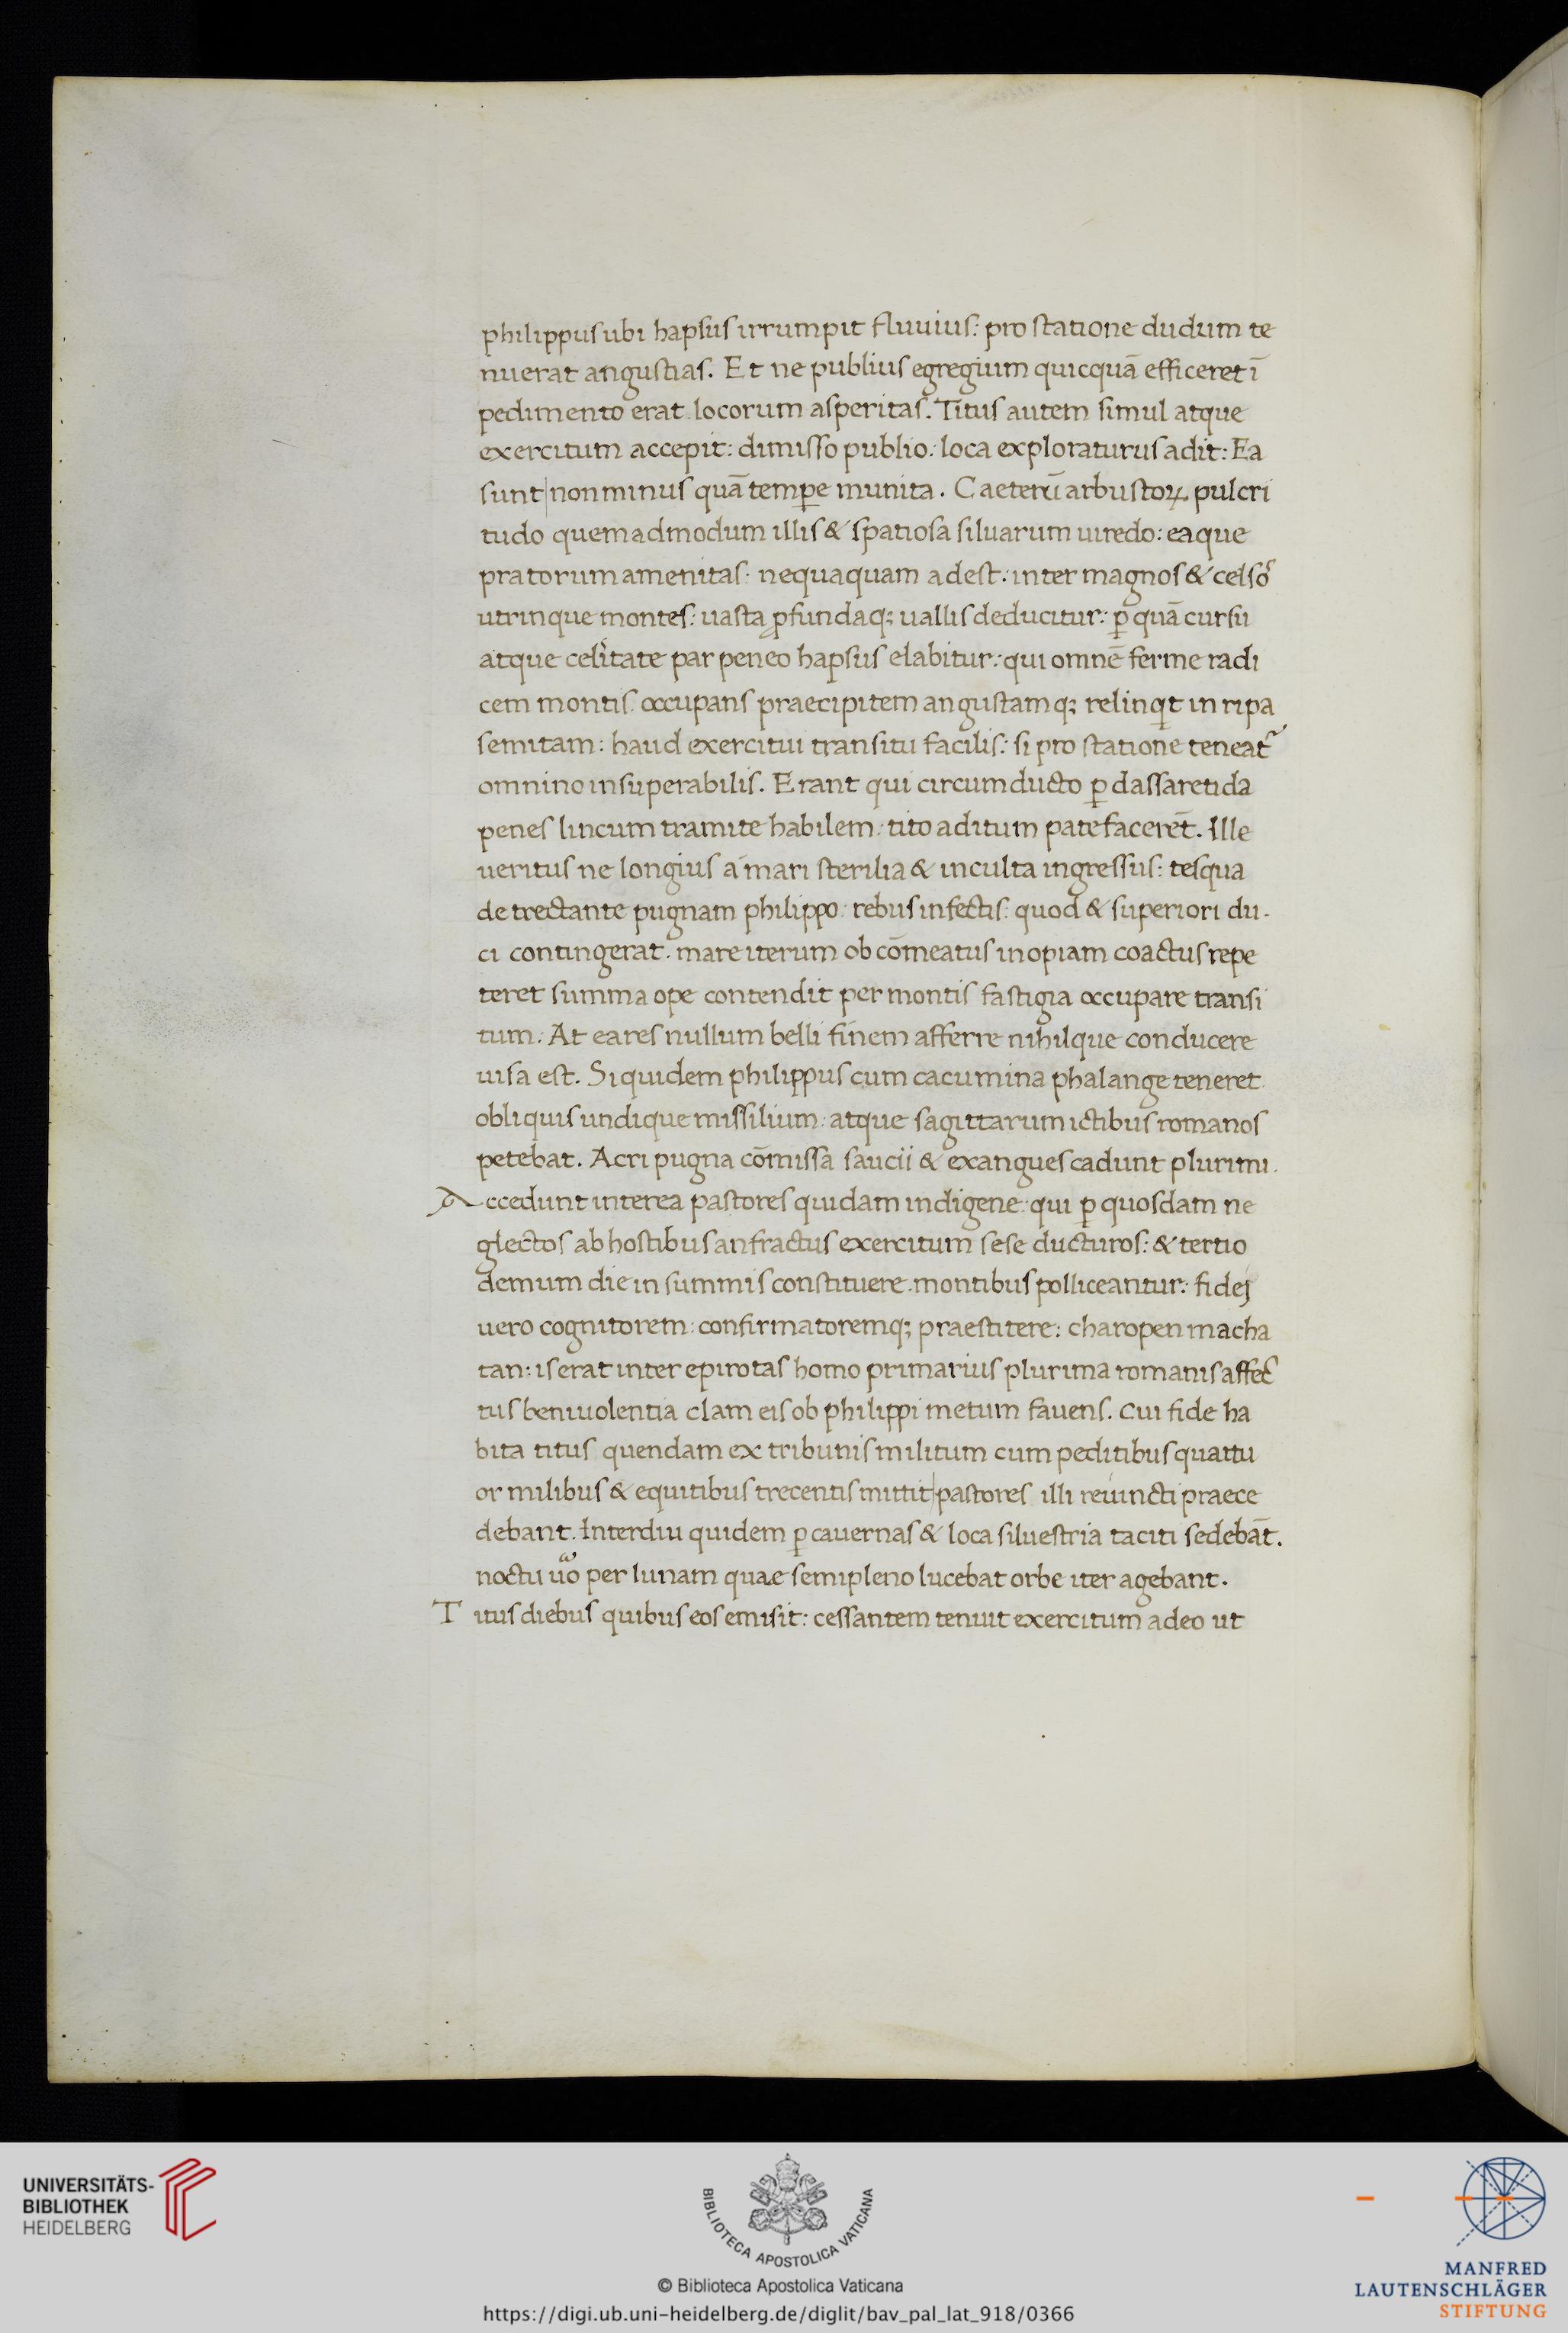 philippus ubi hapsus irrumpit fluuius: pro statione dudum te
nuerat angustias. Et ne publius egregium quicquā efficeret ī
pedimento erat locorum asperitas. Titus autem simul atque
exercitum accepit: dimisso publio: loca exploraturus adit: Ea
sunt|non minus quā tempe munita. Caeterū arbustoꝝ pulcri
tudo quemadmodum illis & spatiosa siluarum uiredo: eaque
pratorum amenitas· nequaquam adest: inter magnos & celsos
utrinque montes: uasta ꝓfundaq; uallis deducitur: ꝑ quā cursu
atque celitate par peneo hapsus elabitur: qui omnē ferme radi
cem montis occupans praecipitem angustamq; relinqt in ripa
semitam: haud exercitui transitu facilis: si pro statione teneat᷑
omnino insuperabilis. Erant qui circumducto ꝑ dassaretida
penes lincum tramite habilem: tito aditum patefacerēt. Ille
ueritus ne longius a mari sterilia & inculta ingressus: tesqua
detrectante pugnam philippo: rebus infectis: quod & superiori du-
ci contingerat. mare iterum ob cōmeatus inopiam coactus repe
teret summa ope contendit per montis fastigia occupare transi
tum. At ea res nullum belli finem afferre nihilque conducere
uisa est. Siquidem philippus cum cacumina phalange teneret
obliquis undique missilium: atque sagittarum ictibus romanos
petebat. Acri pugna cōmissa saucii & exangues cadunt plurimi.
Accedunt interea pastores quidam indigene: qui ꝑ quosdam ne
glectos ab hostibus anfractus exercitum sese ducturos: & tertio
demum die in summis constituere montibus polliceantur: fidej
uero cognitorem: confirmatoremq; praestitere: charopen macha
tan: is erat inter epirotas homo primarius plurima romanis affec
tus beniuolentia clam eis ob philippi metum fauens. Cui fide ha
bita titus quendam ex tribunis militum cum peditibus quattu
or milibus & equitibus trecentis mittit|pastores illi reuincti praece
debant. Interdiu quidem ꝑ cauernas & loca siluestria taciti sedebāt.
noctu uo per lunam quae semipleno lucebat orbe iter agebant.
Titus diebus quibus eos emisit: cessantem tenuit exercitum adeo ut
UNIVERSITÄTS-
BIBLIOTHEK
HEIDELBERG
BIBLIOTECA APOSTOLICA VATICANA
© Biblioteca Apostolica Vaticana
https://digi.ub.uni-heidelberg.de/diglit/bav_pal_lat_918/0366
MANFRED
LAUTENSCHLÄGER
STIFTUNG